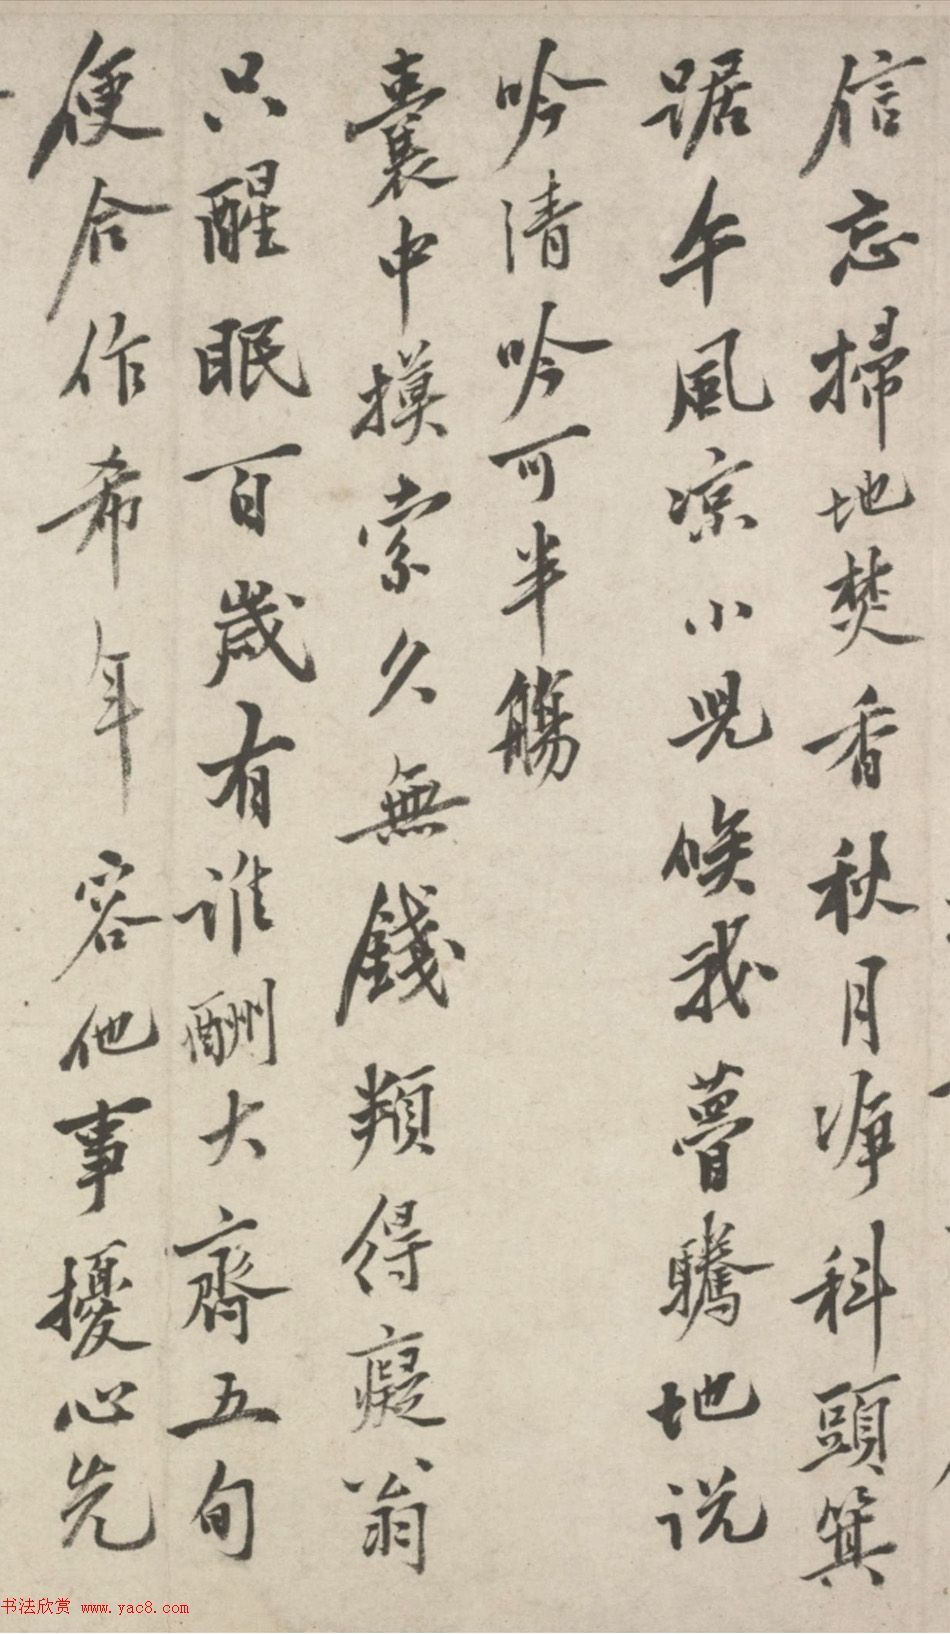 信忘掃地焚香秋月淨科頭箕
踞午風凉小児候我瞢騰地说
吟清吟可半觴
囊中摸索久無錢頻得癡翁
只醒眠百歲有谁酬大齊五旬
便合作希年容他事擾心先
书法欣赏 www.yac8.com